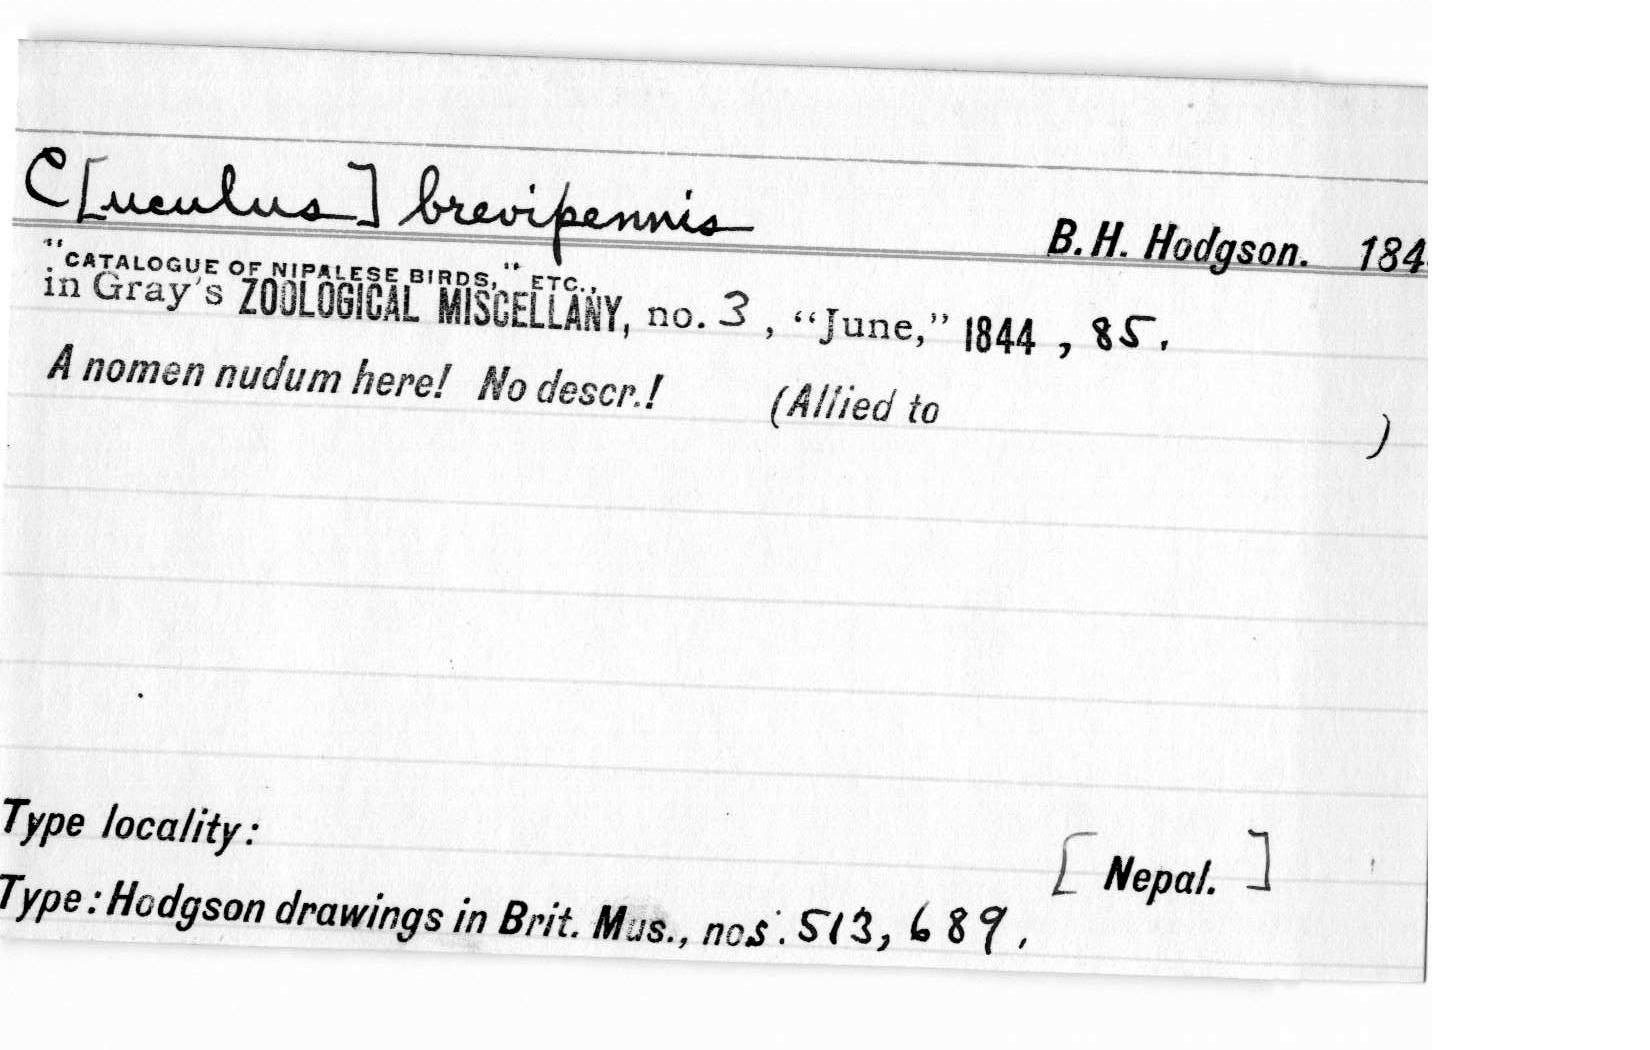 C[uculus] brevipennis B. H. Hodgson. 184
"CATALOGUE OF NIPALESE BIRDS," ETC.,
in Gray's ZOOLOGICAL MISCELLANY, no. 3, "June," 1844, 85.
A nomen nudum here! No descr.! (Allied to )
Type locality: [Nepal.]
Type: Hodgson drawings in Brit. Mus., nos. 513, 689.